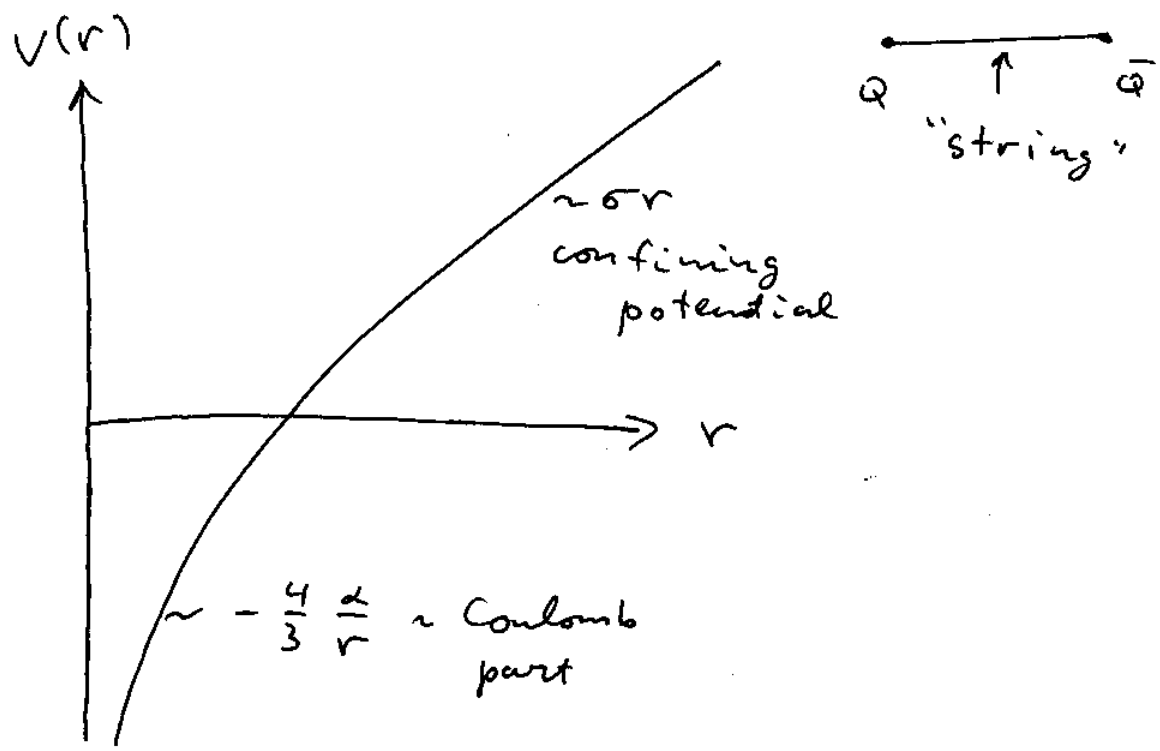 V(r)
Q Q̄
"string"
~ σr
confining
potential
r
~ - 4/3 α/r ~ Coulomb
part